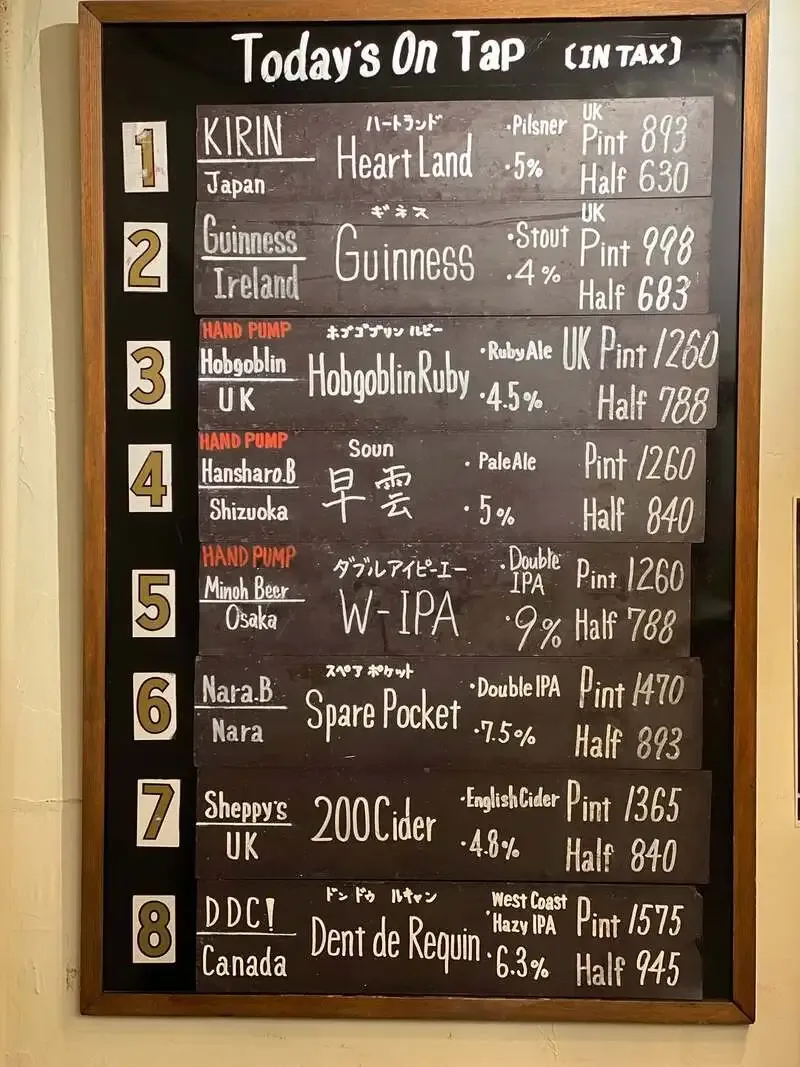 Today's On Tap (IN TAX)
1
KIRIN
Japan
ハートランド
Heart Land
・Pilsner
・5%
UK
Pint 893
Half 630
2
Guinness
Ireland
ギネス
Guinness
・Stout
・4%
UK
Pint 998
Half 683
3
HAND PUMP
Hobgoblin
UK
ホブゴブリン ルビー
Hobgoblin Ruby
・Ruby Ale
・4.5%
UK Pint 1260
Half 788
4
HAND PUMP
Hansharo.B
Shizuoka
Soun
早雲
・Pale Ale
・5%
Pint 1260
Half 840
5
HAND PUMP
Minoh Beer
Osaka
ダブルアイピーエー
W-IPA
・Double
IPA
・9%
Pint 1260
Half 788
6
Nara.B
Nara
スペア ポケット
Spare Pocket
・Double IPA
・7.5%
Pint 1470
Half 893
7
Sheppy's
UK
200 Cider
・English Cider
・4.8%
Pint 1365
Half 840
8
DDC!
Canada
ドン ドゥ ルキャン
Dent de Requin
West Coast
・Hazy IPA
・6.3%
Pint 1575
Half 945